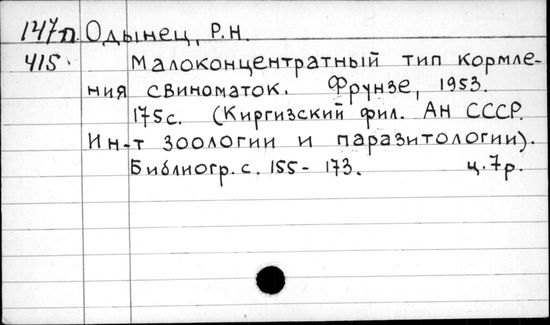 147п Одынец, Р.Н.
415. Малоконцентратный тип кормле-
ния свиноматок. Фрунзе, 1953.
175с. (Киргизский фил. Ан СССР.
Ин-т зоологии и паразитологии).
Библиогр. с. 155-173. ц. 7р.